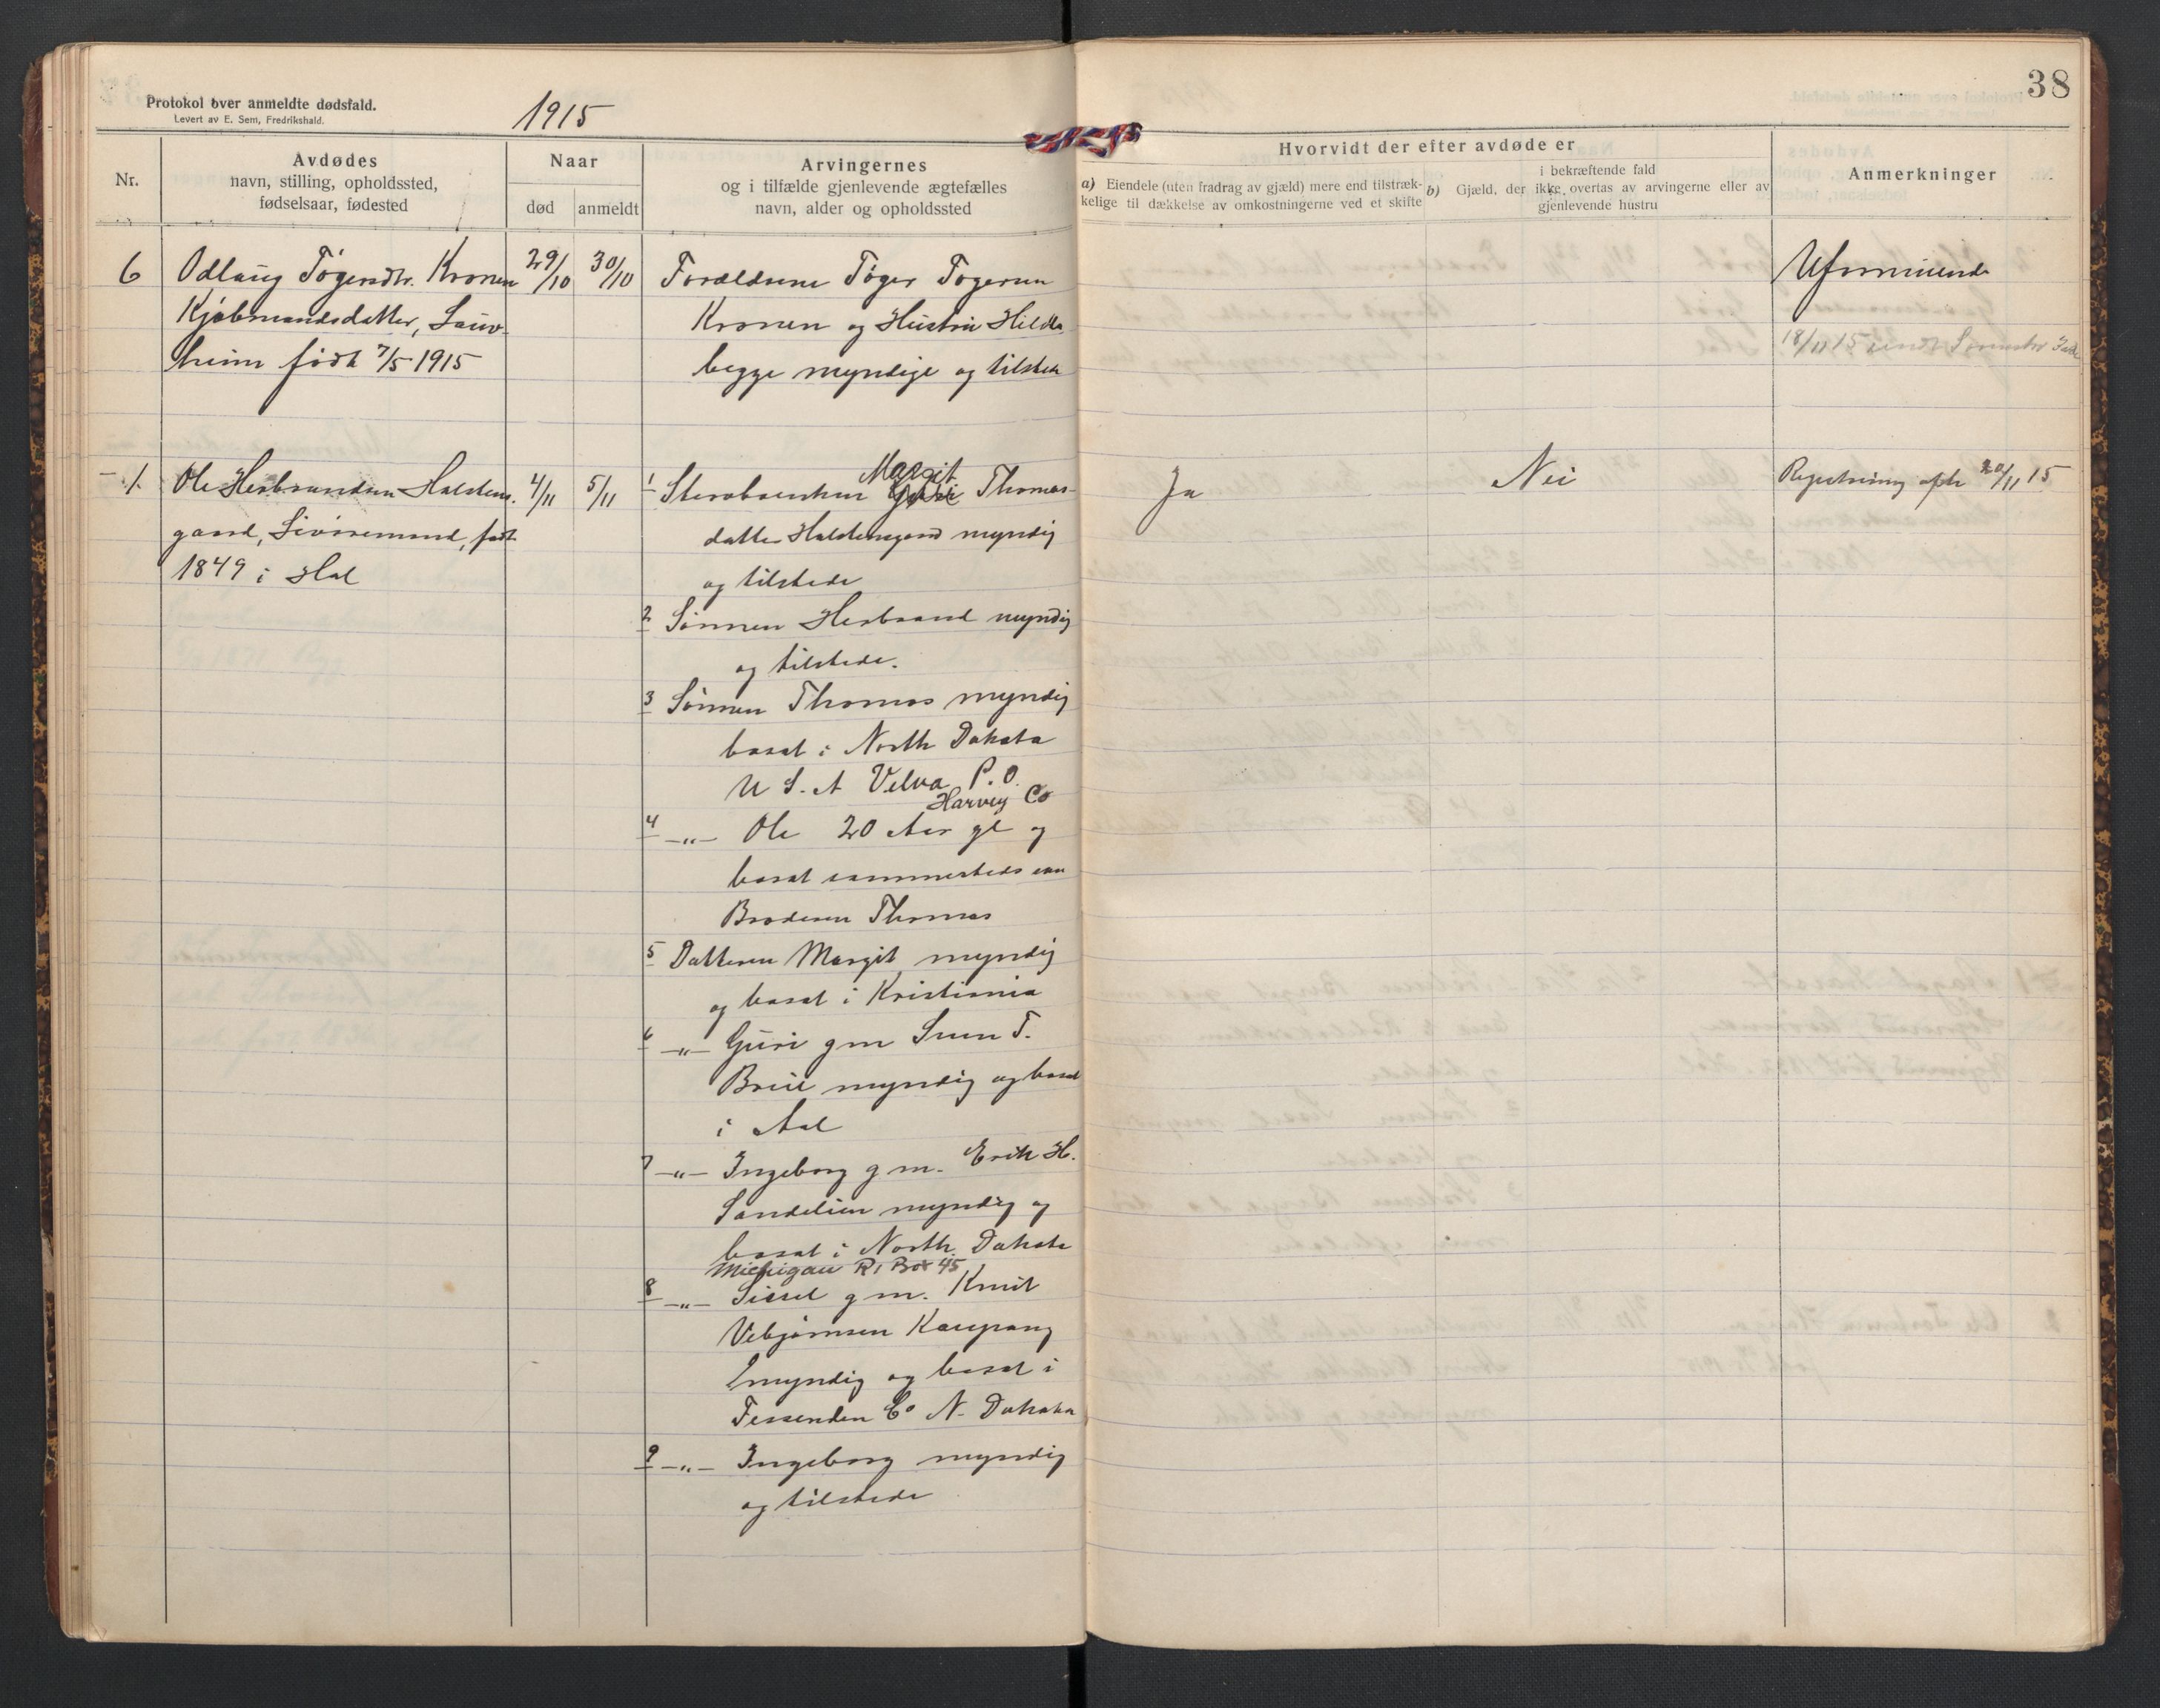 38
Protokol over anmeldte dødsfald.
Levert av E. Sem, Fredrikshald.
1915
Nr.
Avdødes
navn, stilling, opholdssted,
fødselsaar, fødested
Naar
død
anmeldt
Arvingernes
og i tilfælde gjenlevende ægtefælles
navn, alder og opholdssted
Hvorvidt der efter avdøde er
a) Eiendele (uten fradrag av gjæld) mere end tilstræk-
kelige til dækkelse av omkostningerne ved et skifte
i bekræftende fald
b) Gjæld, der ikke overtas av arvingerne eller av
gjenlevende hustru
Anmerkninger
6
Odlaug Tøgersdtr. Kronen
Kjøbmandsdatter, Sauv-
heim født 7/5 1915
29/10
30/10
Forældrene Tøger Togersen
Kronen og Hustru Hilda
begge myndige og tilstede
Uformuende
18/11 15
1
Ole Herbrandsen Halstens-
gaard, født
1849 i Hol
4/11
5/11
1 Stervboenken Margit Thomas-
datter Halstensgaard myndig
og tilstede
2 Sønnen Herbrand myndig
og tilstede.
3 Sønnen Thomas myndig
bosat i North Dakota
U S. A Velva P.O.
Harvey Co
4 -"- Ole 20 Aar gl og
bosat sammesteds som
Broderen Thomas
5 Datteren Margit myndig
og bosat i Kristiania
6 -"- Guri g m Sven T.
Breie myndig og bosat
i Aal
7 -"- Ingeborg g m. Erik H.
Sandelien myndig og
bosat i North Dakota
Michigan R1 Box 45
8 -"- Sissel g m. Knut
Vebjørnsen Kaupang
myndig og bosat i
Fessenden Co N. Dakota
9 -"- Ingeborg myndig
og tilstede
Ja
Nei
Registrering opta 20/11 15